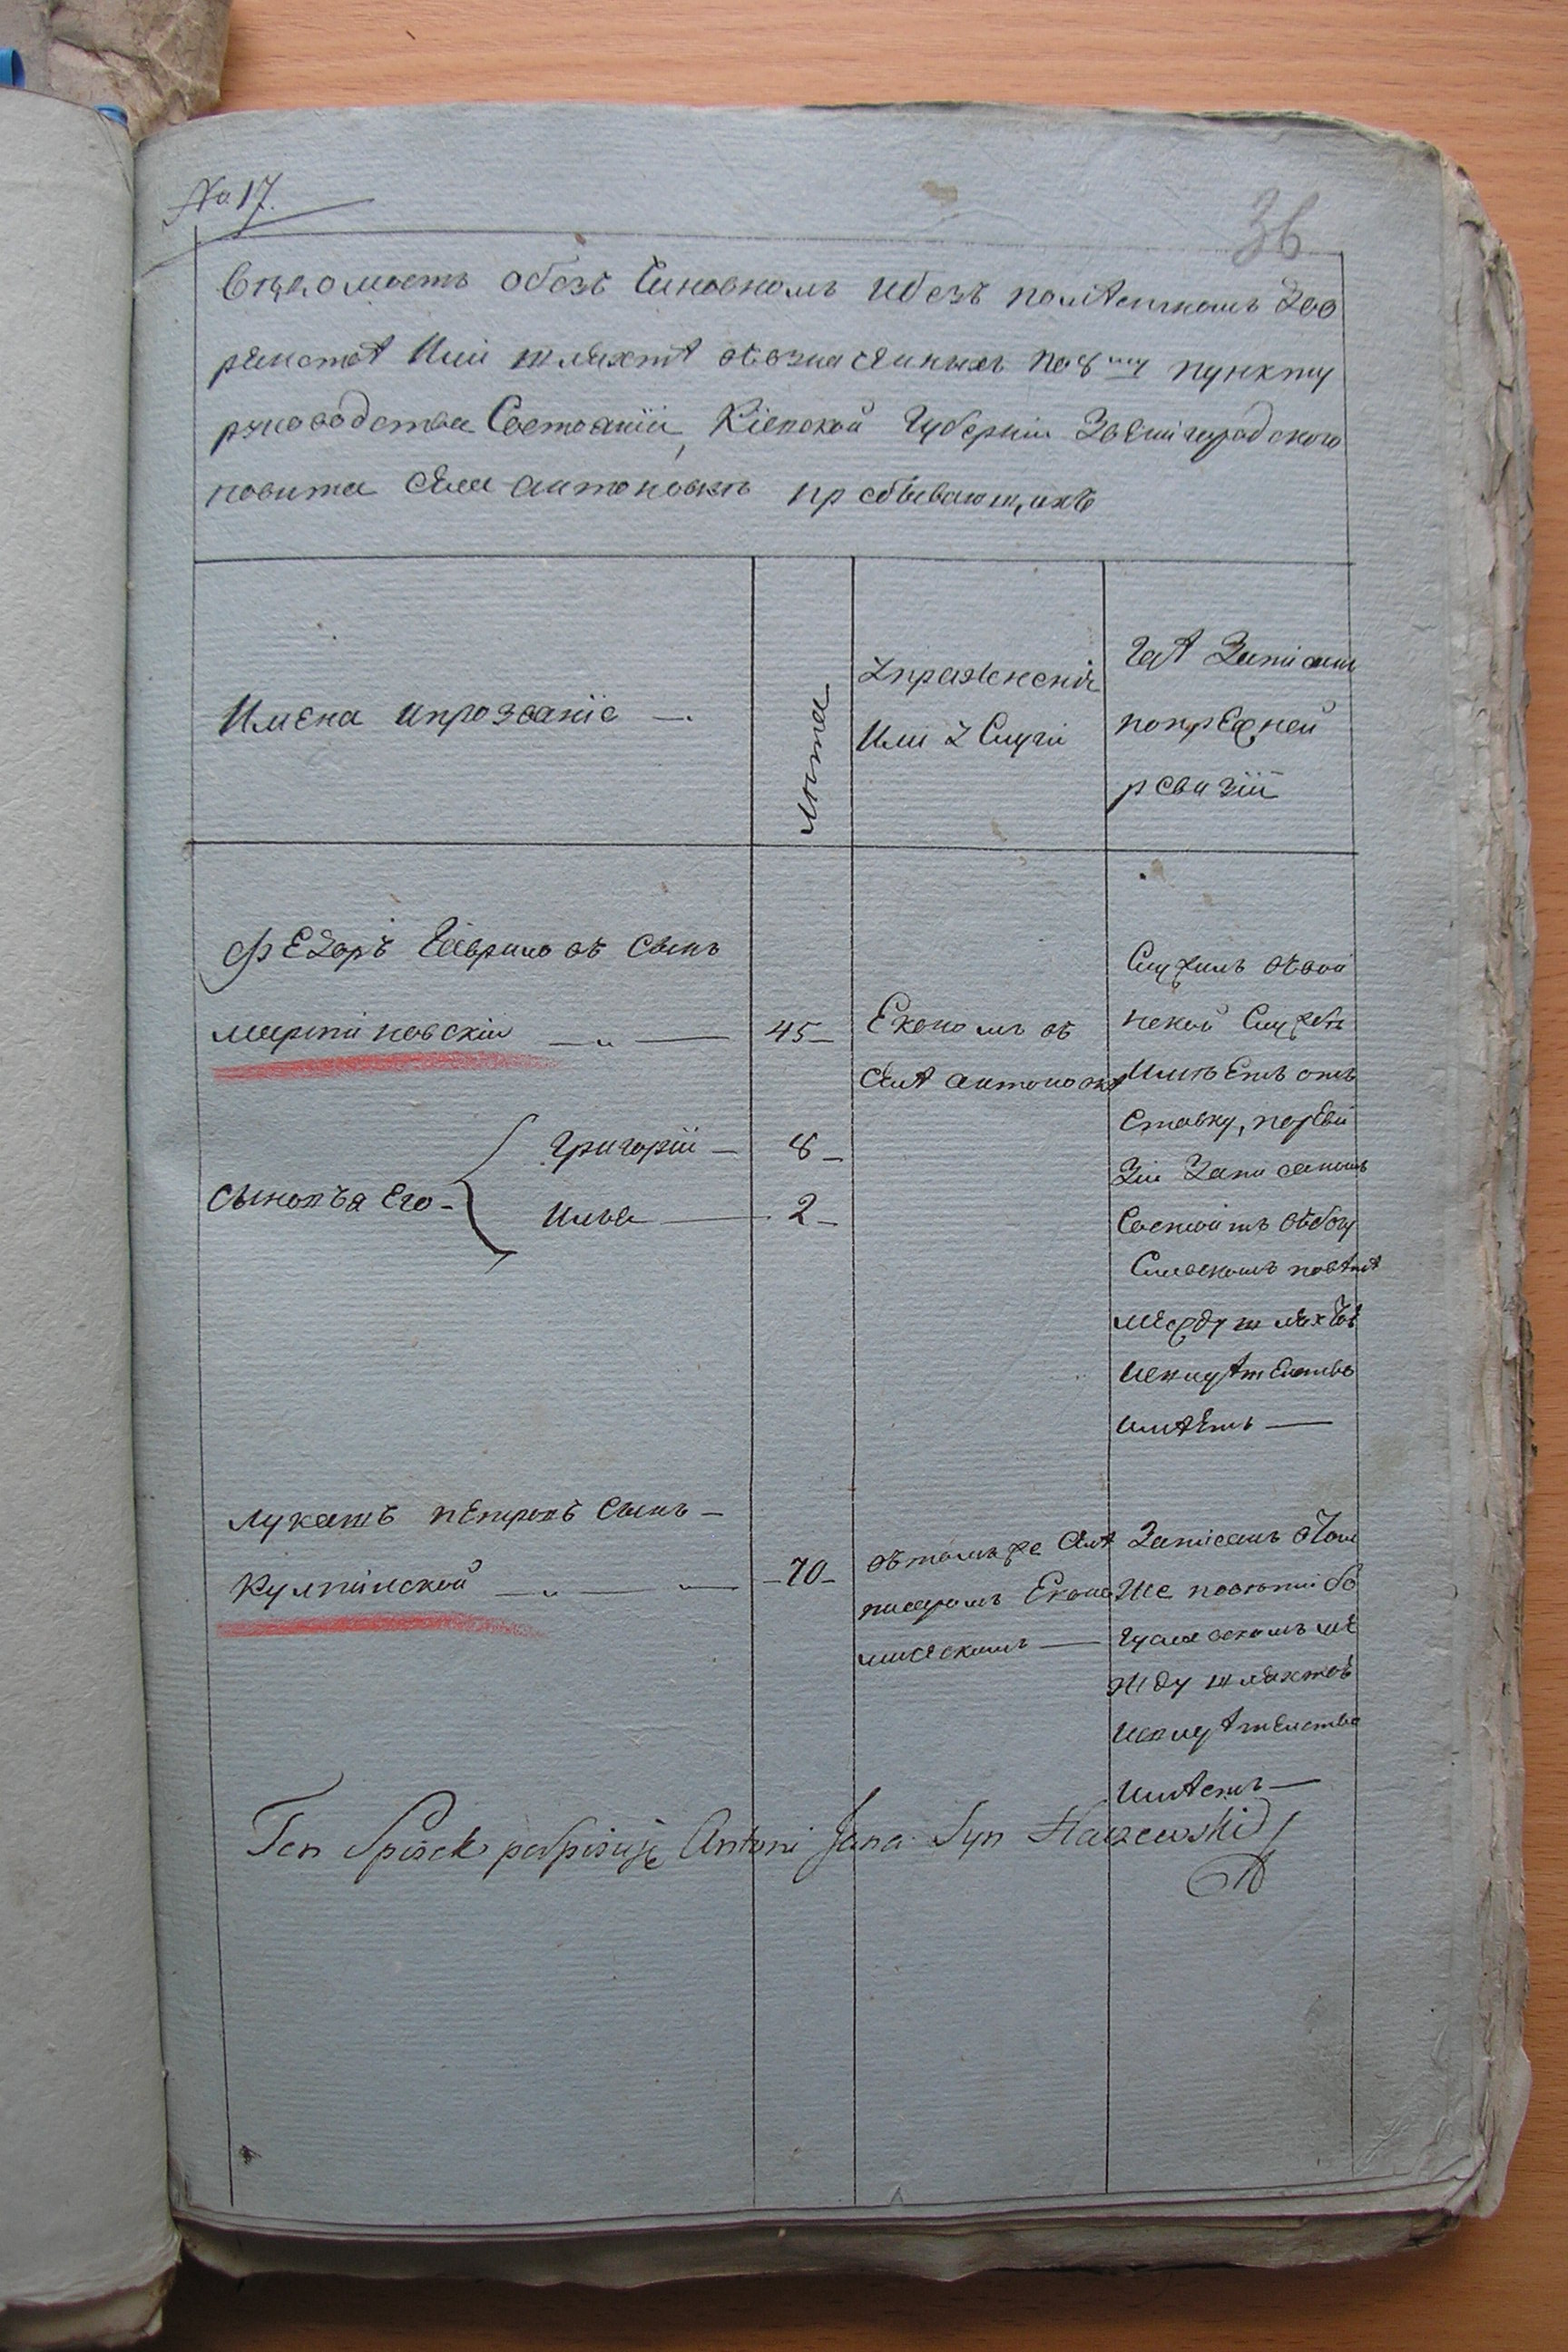 No 17.
36
Вѣдомость обезъ Чиновномъ ибезъ помѣстномъ Дво
рянствѣ Или шляхтѣ означенныхъ по 8му пункту
руководства Состоянїи, Кіевской Губерніи Звенигурадского
повита Села антоновки пребивающихъ
Имена ипрозваніе —.
лѣта
Упражненій
Или У Слугій
Гдѣ Записанъ
попрежней
ревизїй
ФЕдоръ Гаврилов въ Сынъ
мартиновскій — „ —
45 —
Економъ въ
Селѣ антоновки
Служилъввой
нской Службѣ
Имѣетъ отъ
ставку, поревй
зіи Записаномъ
Состоитъ вѣбогу
Славскомъ повѣтѣ
между шляхтов
Искпутѣтелство
имѣетъ —
Сыновъя Его —
Григорїй — 8 —
Илья — 2 —
лукашъ пЕтровъ Сынъ —
Кулпинской — „ — „ —
— 70 —
втомъже Селѣ
писаромъ Еконо
мическимъ —
Записанъ втом
же повѣтѣ бо
гуславскомъ ме
жду шляхтов
Искпутѣтелство
имѣетъ —
Ten Spisek podpisuję Antoni Jana Syn